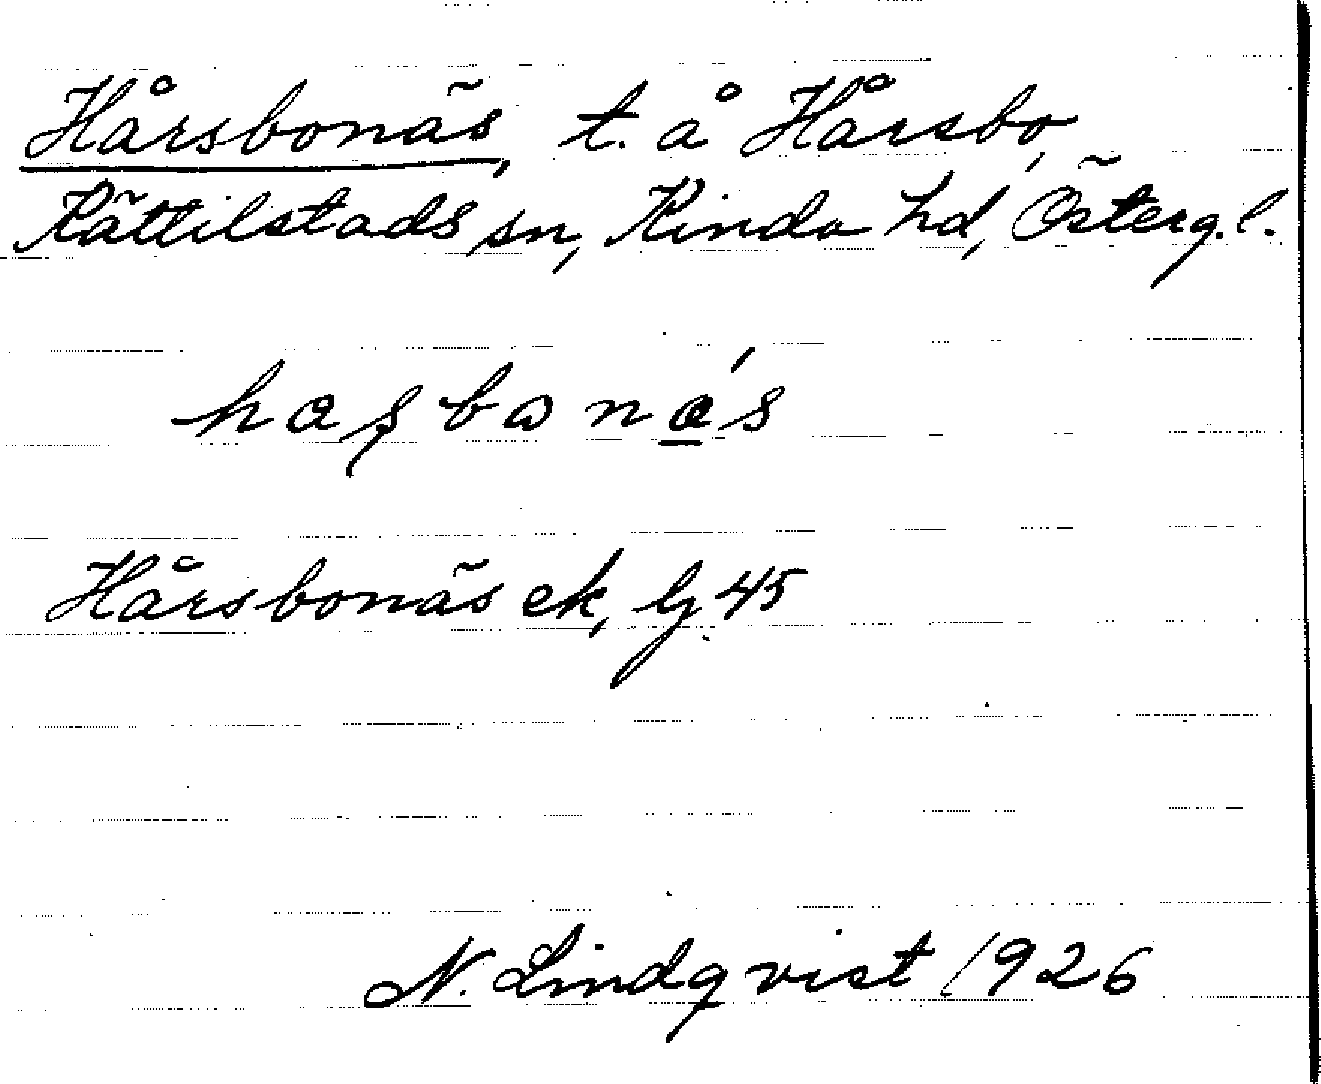 Hårsbonäs, t. å Hårsbo,
Kättilstads sn, Kinda hd, Österg.l.
Hårsbonäs ek, bj 45
N. Lindqvist 1926